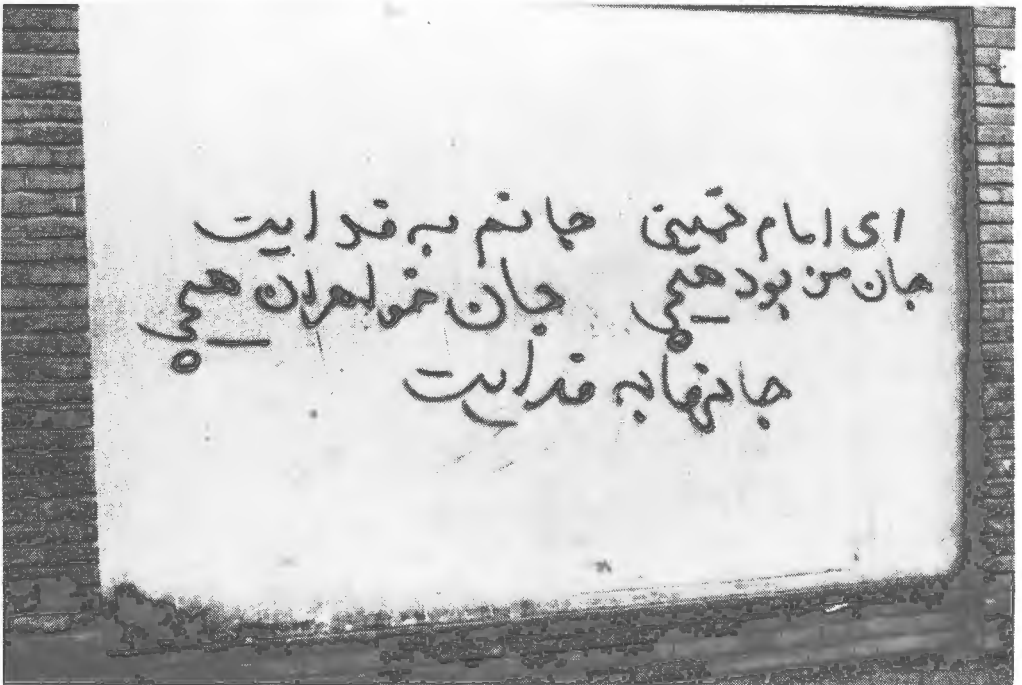 ای امام خمینی جانم به فدایت
جان من بود هیچی جان خواهران هیچی
جانها به فدایت